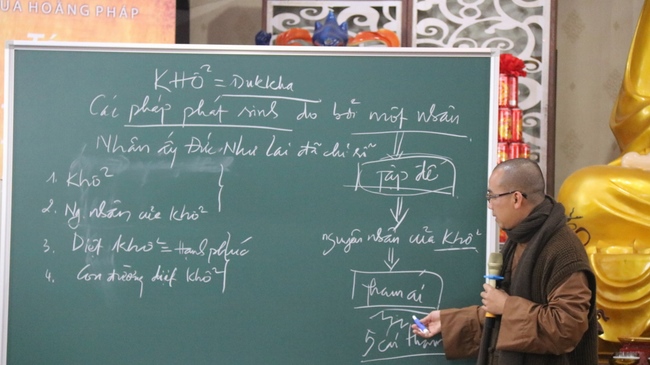 UA HOẰNG PHÁP
KHỔ = Dukkha
Các pháp phát sinh do bởi một nhân
Nhân ấy Đức Như Lai đã chỉ rõ
1. Khổ
2. Ng nhân của khổ
3. Diệt khổ = Hạnh phúc
4. Con đường diệt khổ
Tập đế
nguyên nhân của khổ
tham ái
5 cái tham